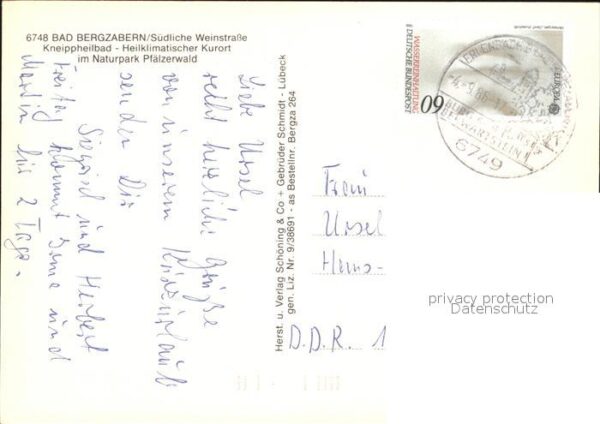 6748 BAD BERGZABERN/Südliche Weinstraße
Kneippheilbad - Heilklimatischer Kurort
im Naturpark Pfälzerwald
Liebe Ursel
recht herzliche Grüße
von unserem Kurzurlaub
senden Dir
Sigrid und Herbert
Freitag kommt und
Martin für 2 Tage.
Herst. u. Verlag Schöning & Co + Gebrüder Schmidt - Lübeck
gen. Liz. Nr. 9/38691 - as Bestellnr. Bergza 264
60
WASSERREINHALTUNG
DEUTSCHE BUNDESPOST
EUROPA
6749
Frau
Ursel
Hans-
D.D.R. 1
privacy protection
Datenschutz